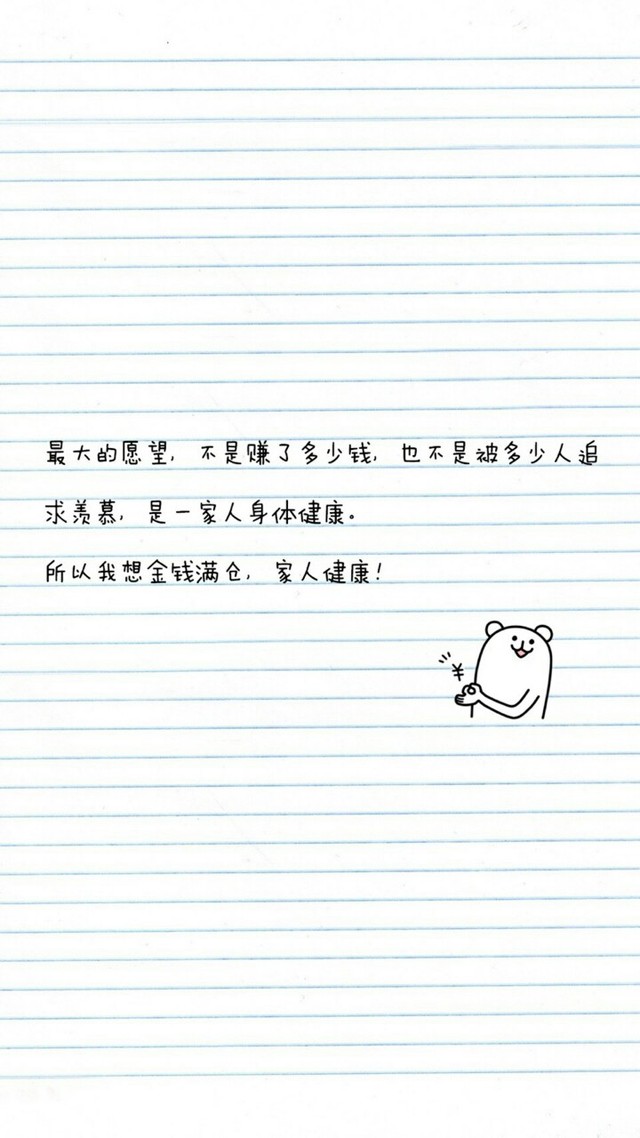 最大的愿望，不是赚了多少钱，也不是被多少人追
求羡慕，是一家人身体健康。
所以我想金钱满仓，家人健康！
¥